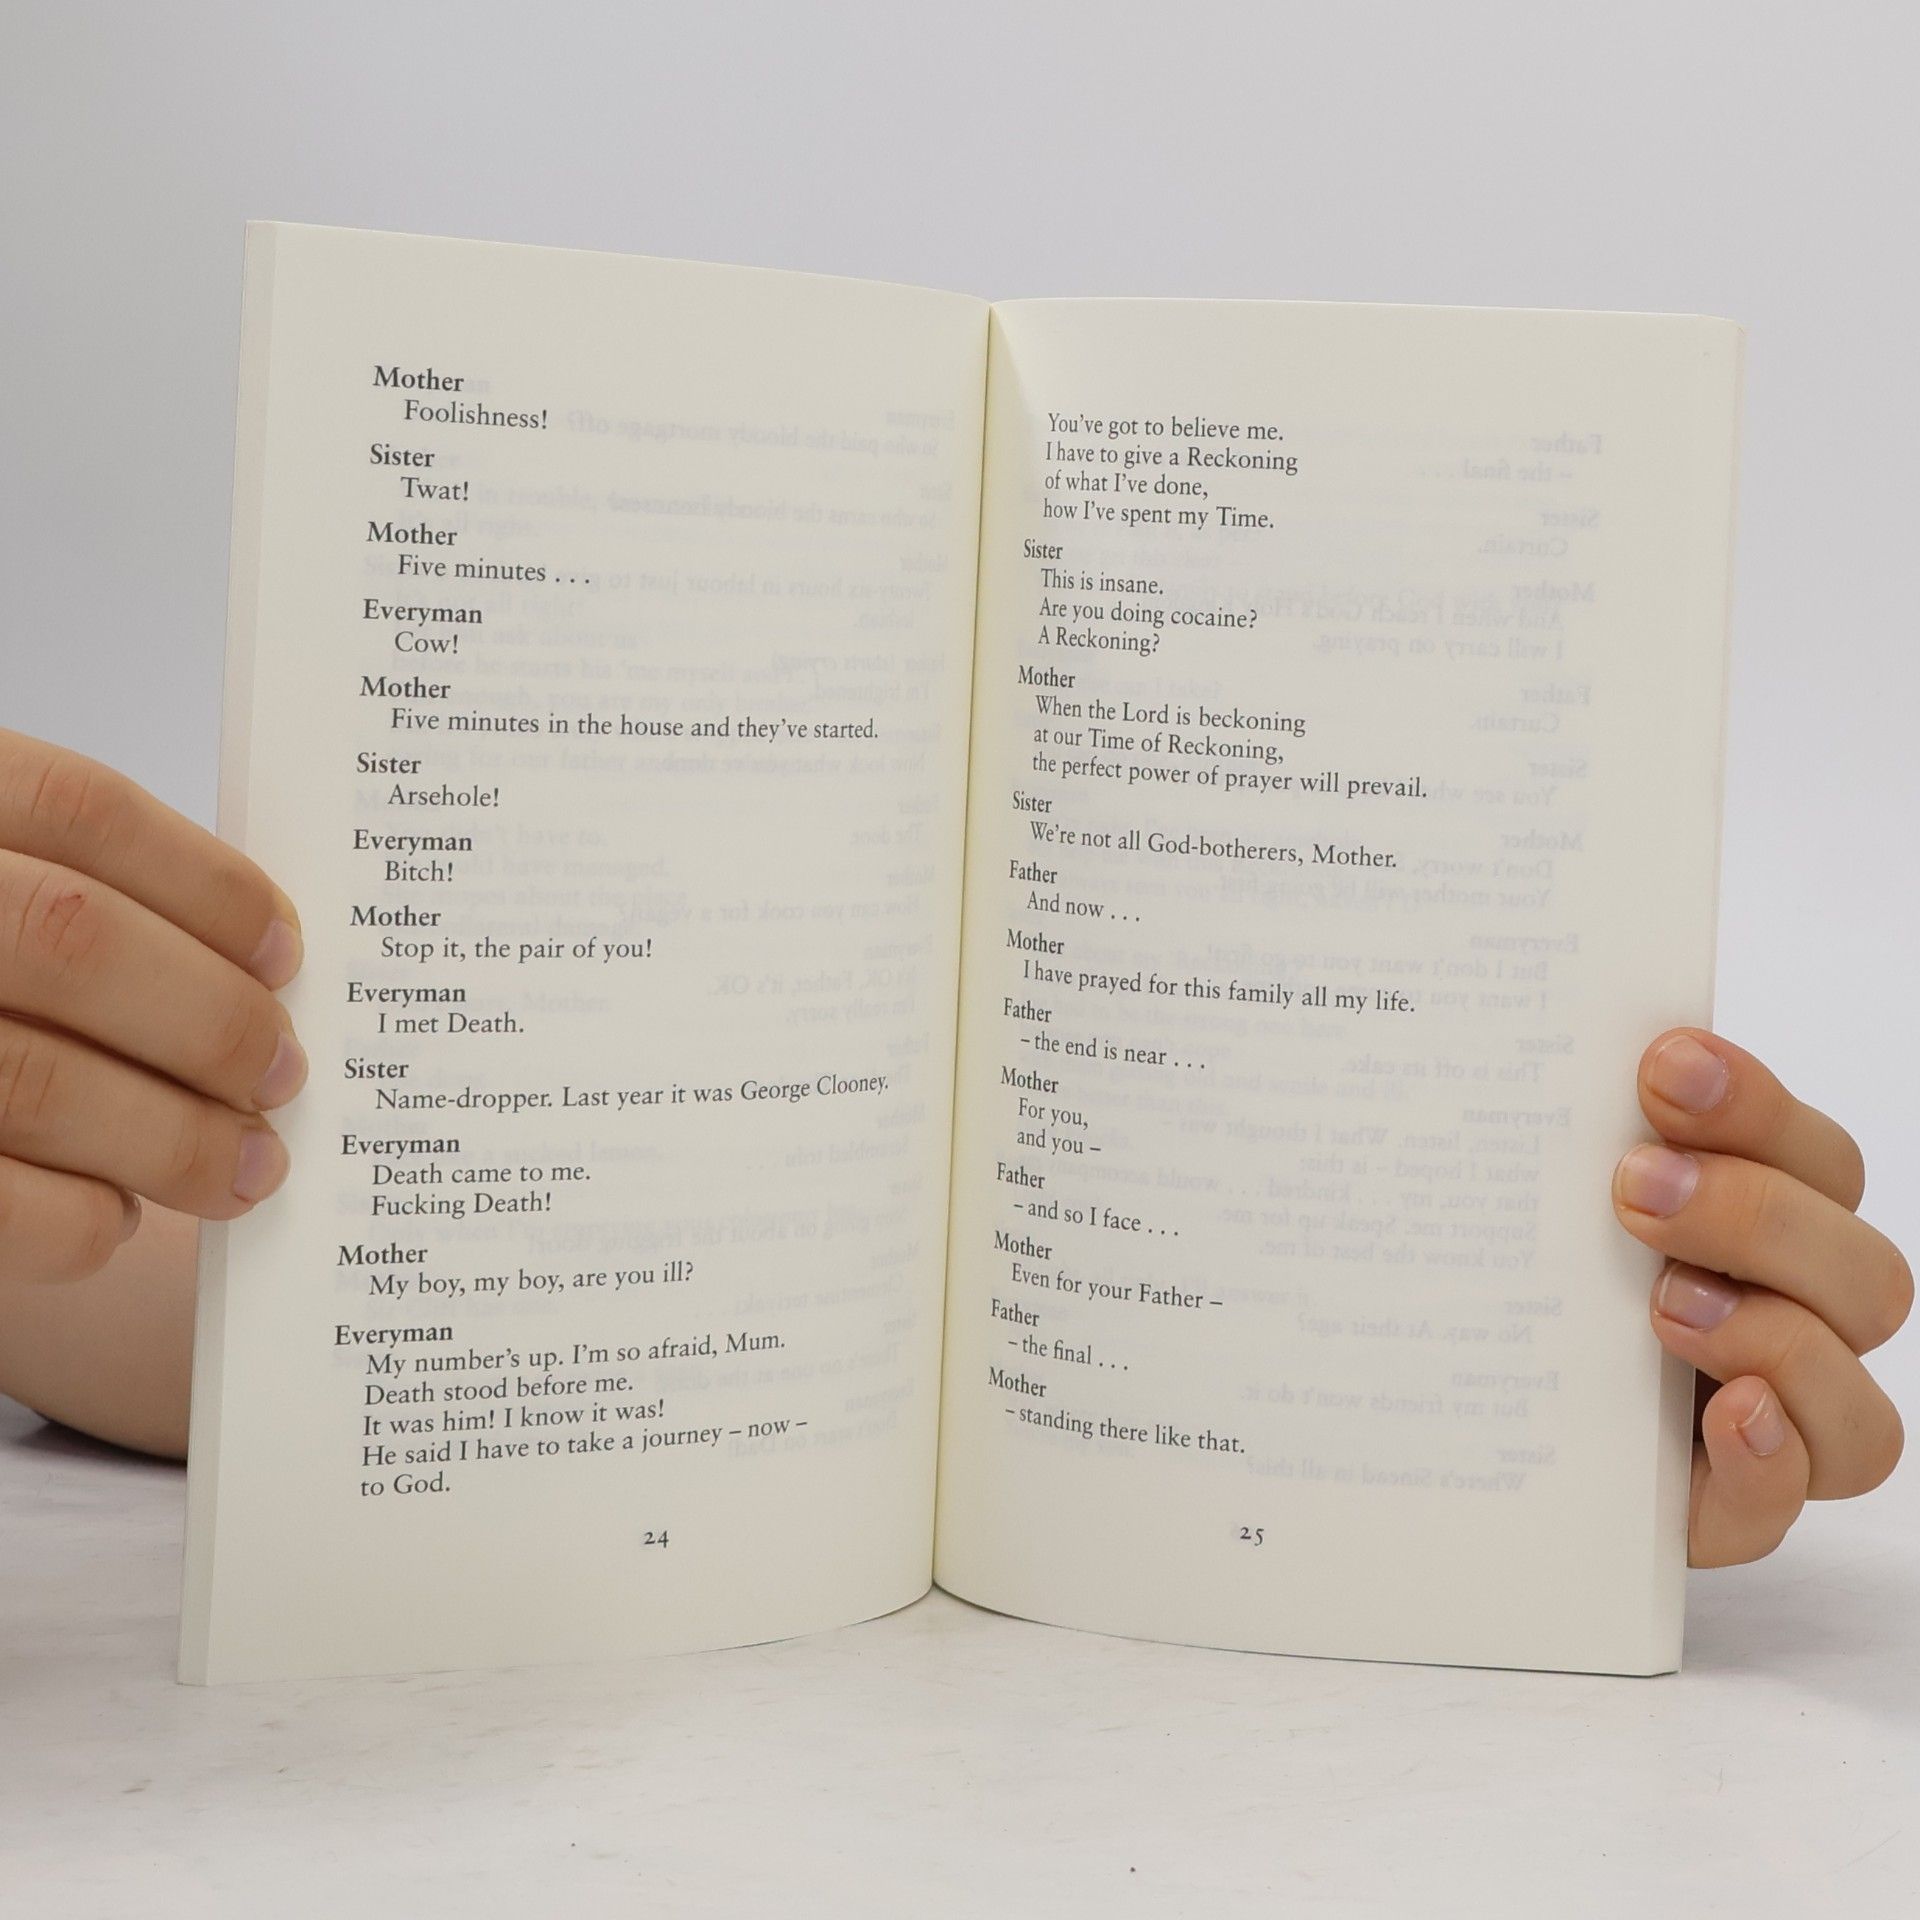 Mother
Foolishness!
Sister
Twat!
Mother
Five minutes . . .
Everyman
Cow!
Mother
Five minutes in the house and they've started.
Sister
Arsehole!
Everyman
Bitch!
Mother
Stop it, the pair of you!
Everyman
I met Death.
Sister
Name-dropper. Last year it was George Clooney.
Everyman
Death came to me.
Fucking Death!
Mother
My boy, my boy, are you ill?
Everyman
My number's up. I'm so afraid, Mum.
Death stood before me.
It was him! I know it was!
He said I have to take a journey – now –
to God.
24
You've got to believe me.
I have to give a Reckoning
of what I've done,
how I've spent my Time.
Sister
This is insane.
Are you doing cocaine?
A Reckoning?
Mother
When the Lord is beckoning
at our Time of Reckoning,
the perfect power of prayer will prevail.
Sister
We're not all God-botherers, Mother.
Father
And now . . .
Mother
I have prayed for this family all my life.
Father
– the end is near . . .
Mother
For you,
and you –
Father
– and so I face . . .
Mother
Even for your Father –
Father
– the final . . .
Mother
– standing there like that.
25